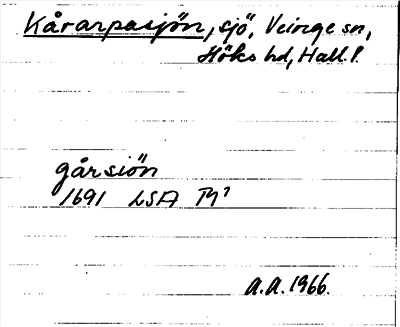 Kårarpasjön, sjö, Veinge sn,
Höks hd, Hall. l.
gårsiön
1691 LSA M⁷
A.A. 1966.